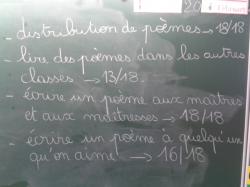 20
- distribution de poèmes → 18/18
- lire des poèmes dans les autres
classes → 13/18.
- écrire un poème aux maîtres
et aux maîtresses → 18/18
- écrire un poème à quelqu'un
qu'on aime → 16/18